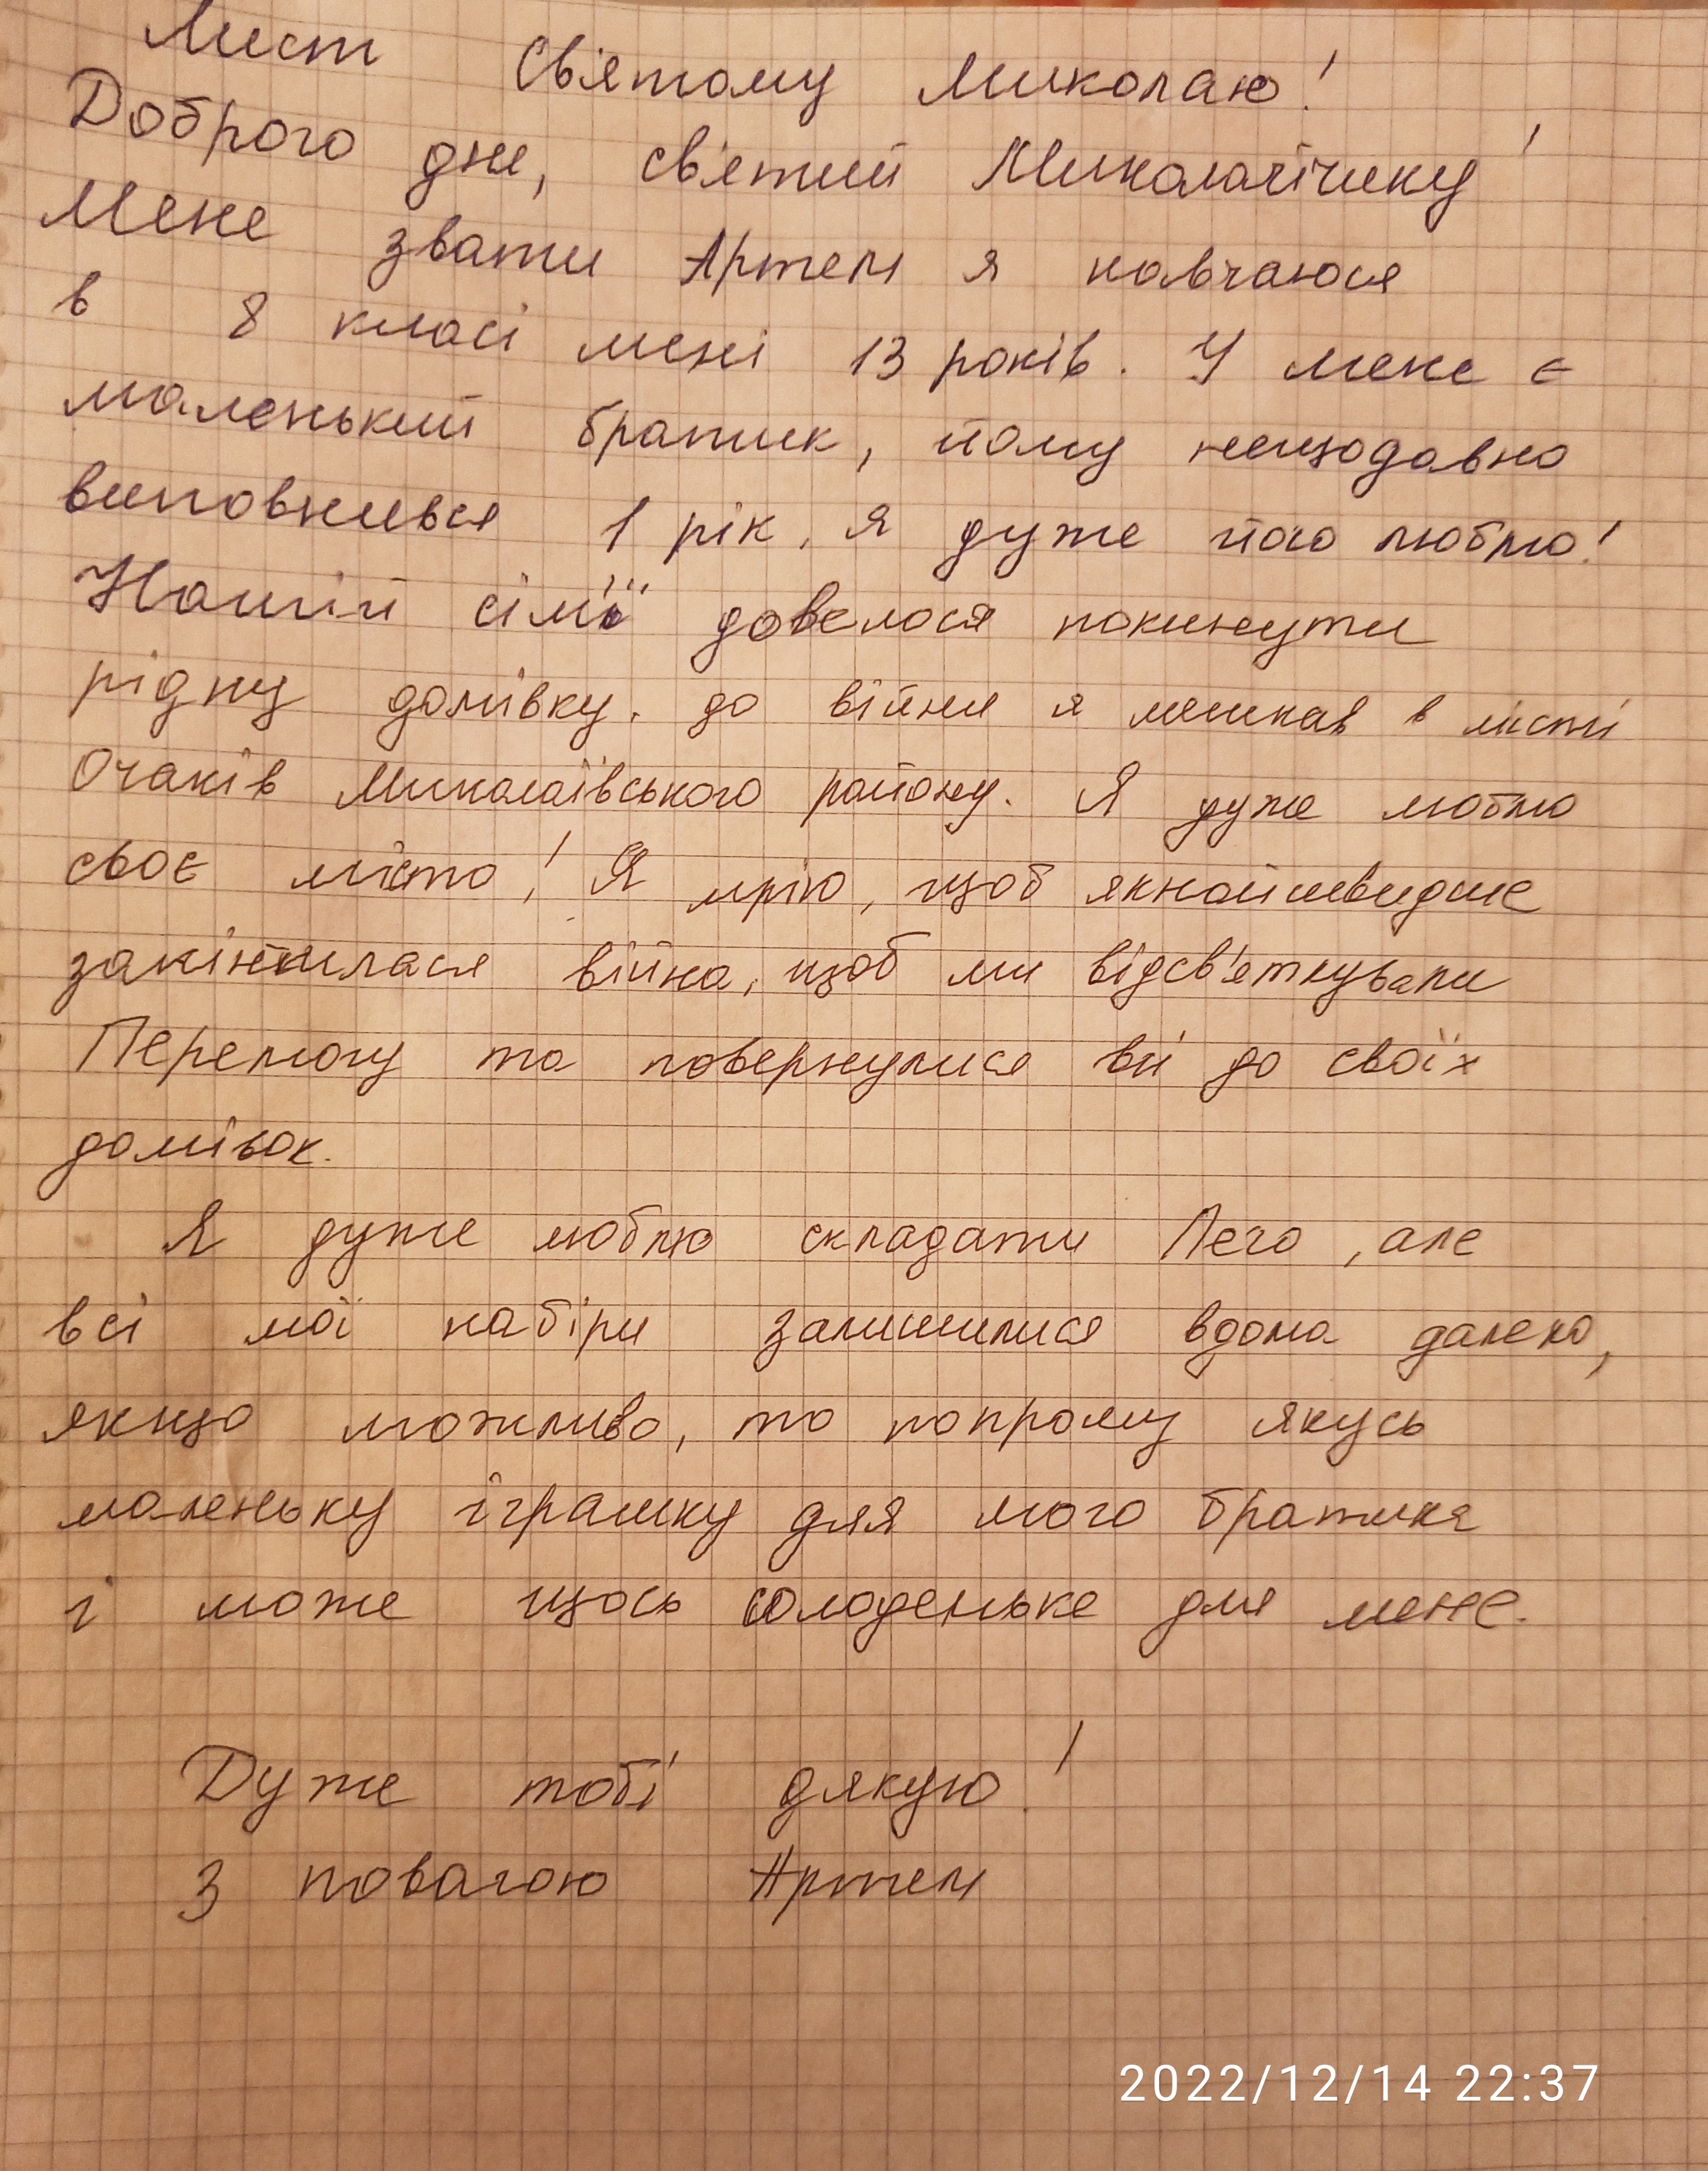 Лист Святому Миколаю!
Доброго дня, святий Миколайчику!
Мене звати Артем я навчаюся
в 8 класі мені 13 років. У мене є
маленький братик, йому нещодавно
виповнився 1 рік, я дуже його люблю!
Нашій сім'ї довелося покинути
рідну домівку. до війни я мешкав в місті
Очаків Миколаївського району. Я дуже люблю
своє місто! Я мрію, щоб якнайшвидше
закінчилася війна, щоб ми відсв'яткували
Перемогу та повернулися всі до своїх
домівок.
Я дуже люблю складати Лего, але
всі мої набіри залишилися вдома далеко,
якщо можливо, то попрошу якусь
маленьку іграшку для мого братика
і може щось солоденьке для мене.
Дуже тобі дякую!
З повагою Артем
2022/12/14 22:37